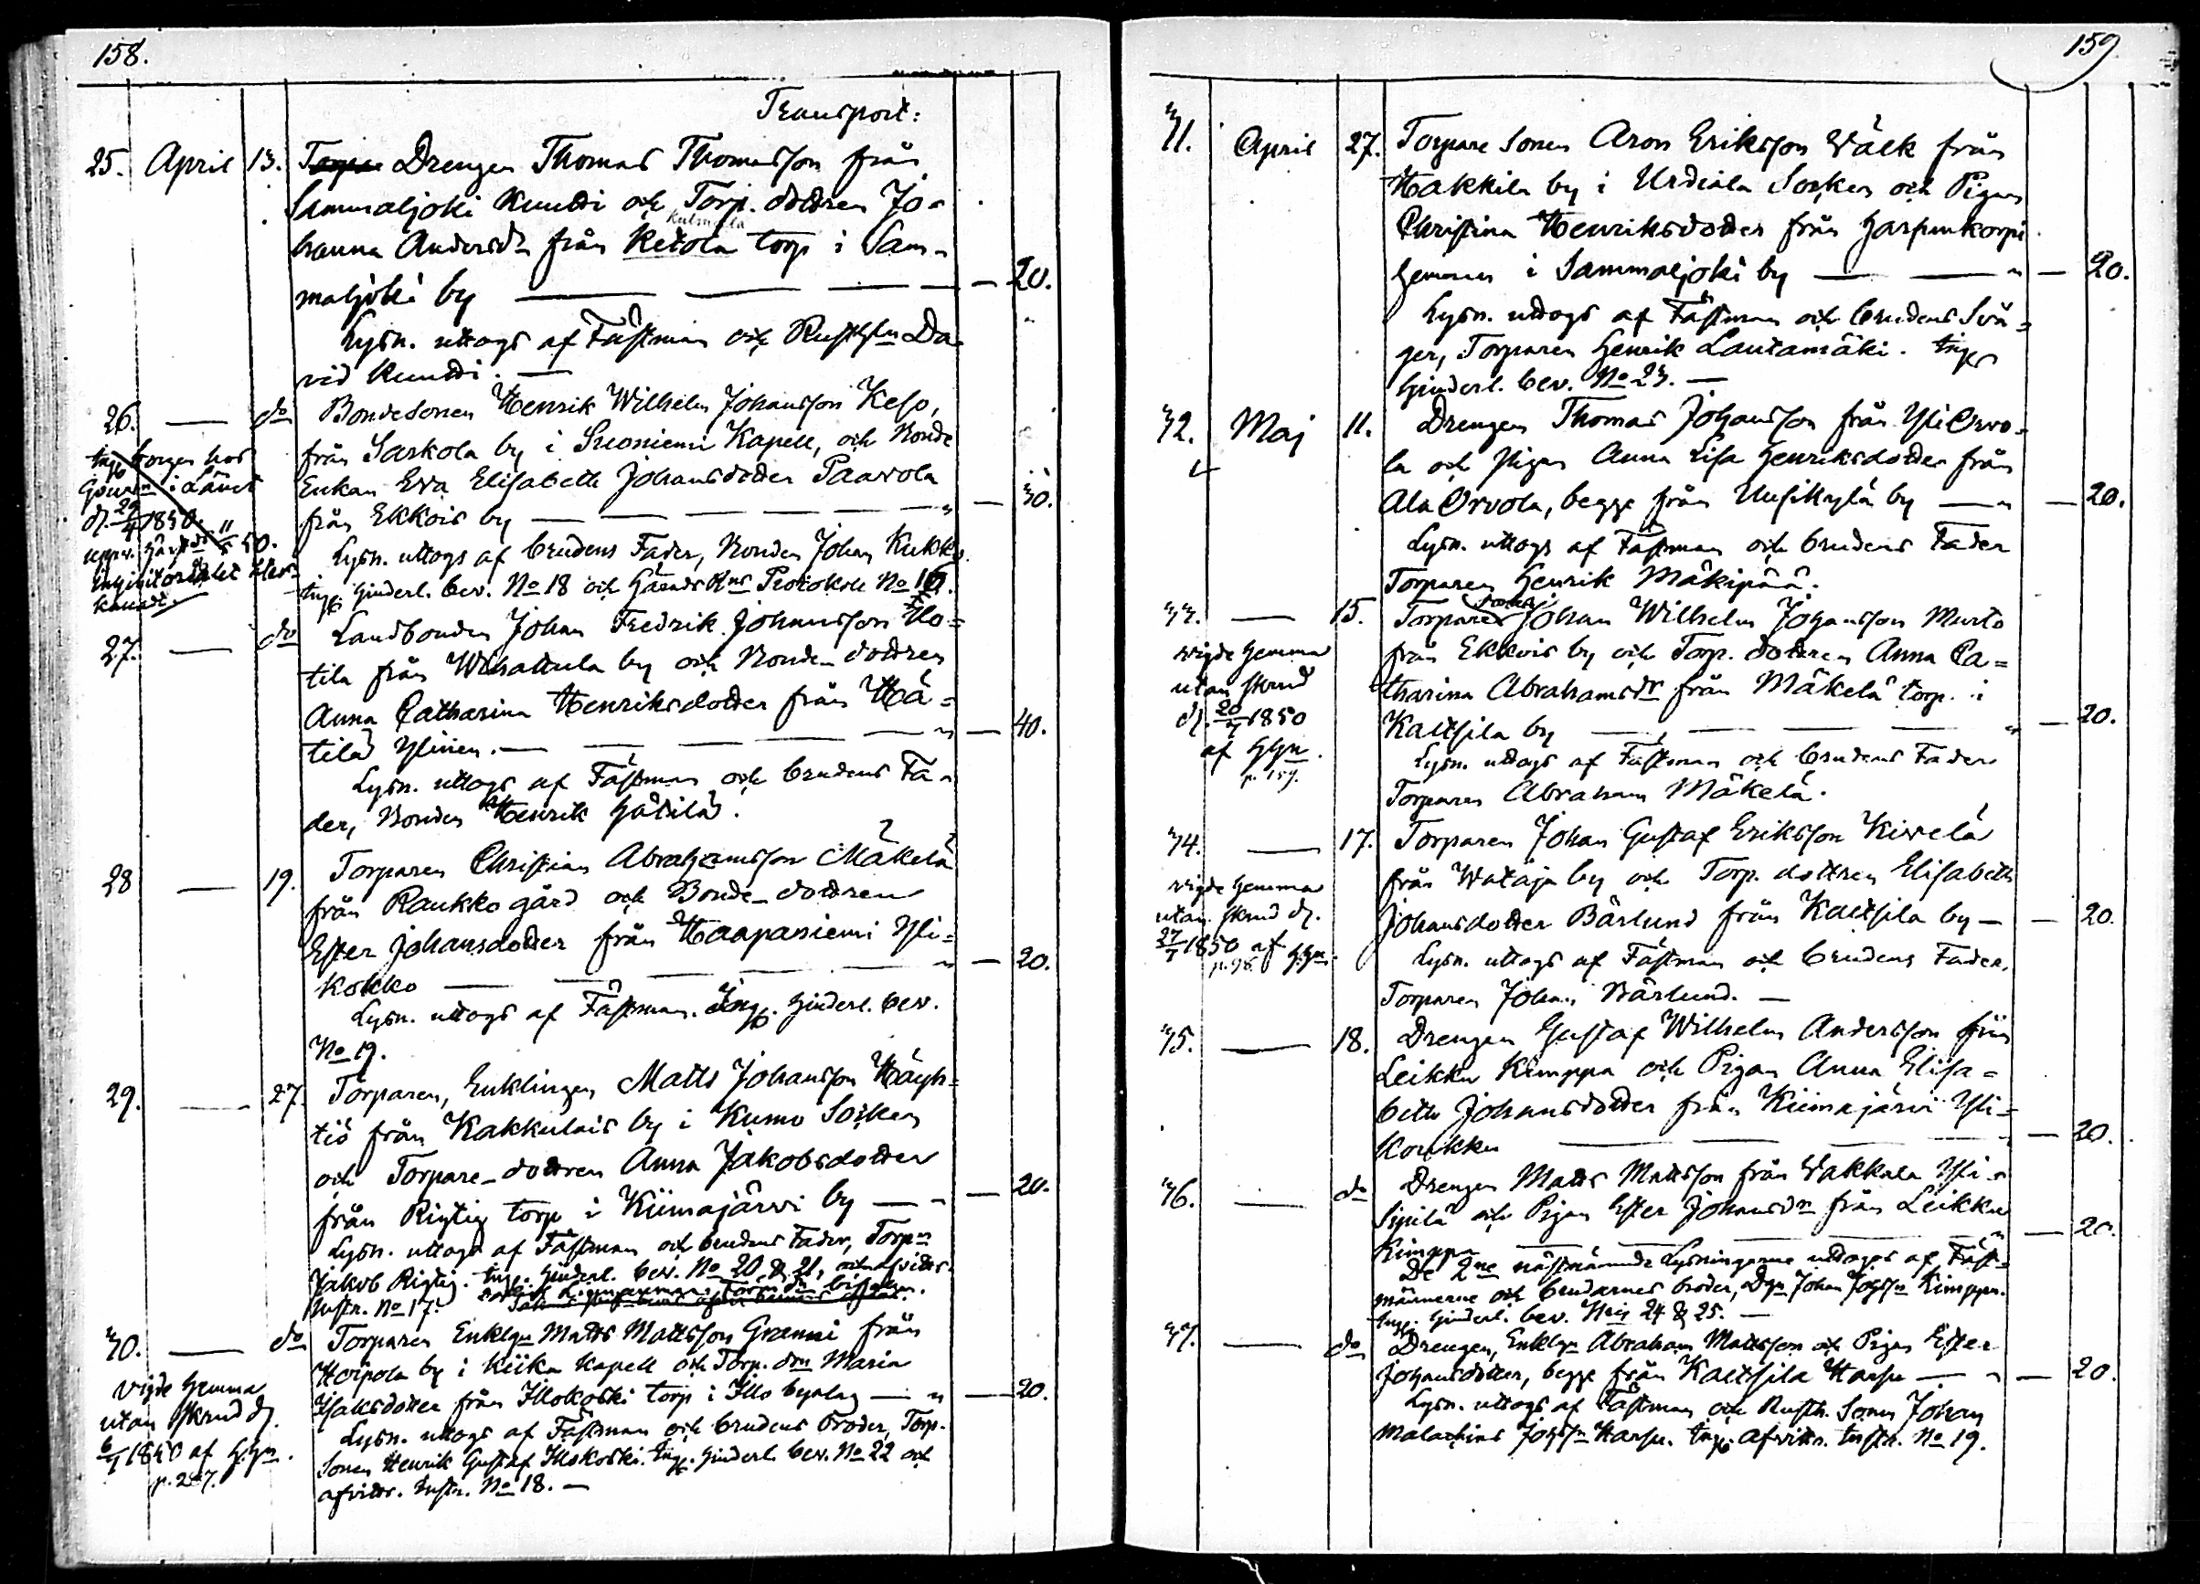 158.
Transport:
25. April 13. Drengen Thomas Thomasson från
Sammaljoki Kunndi och Torp. dottren Jo-
Kulmala
hanna Andersdr från Ketola torp i Sam-
maljoki by — — — 20.
Lysn. uttogs af Fästman och Rusthn Da-
vid Kunndi. —
26. — do Bondesonen Henrik Wilhelm Johansson Keso,
från Sarkola by i Suoniemi Kapell, och Bonde
Enkan Eva Elisabeth Johansdotter Paavola
från Ekkois by — — — 30.
Lysn. uttogs af brudens Fader, Bonden Johan Kukko.
Ingf. hinderl. bev. No 18 och Härads Rns Protokoll No 16.
d. 29/4 1850.
27. — do Landbonden Johan Fredrik Johansson Ho-
tila från Wihattula by och Bonde dottren
Anna Catharina Henriksdotter från Hä-
tilä Ylinen. — — — 40.
Lysn. uttogs af Fästman och brudens Fa-
der, Bonden Henrik Hätilä.
28 — 19. Torparen Christian Abrahamsson Mäkelä
från Laukko gård och Bonde-dottren
Ester Johansdotter från Haapaniemi Yli-
Kokko — — — 20.
Lysn. uttogs af Fästman. Ingf. hinderl. bev.
No 19.
29. — 27. Torparen, Enklingen Matts Johansson Häyh-
tiö från Kakkulais by i Kumo Socken
och Torpare-dottren Anna Jakobsdotter
från Rigtig torp i Kiimajärwi by — 20.
Lysn. uttogs af Fästman och brudens Fader, Torpn
Jakob Rigtig. Ingf. hinderl. bev. No 20 & 21, och afvittr.
Instr. No 17.
30. — do Torparen Enklgn Matts Mattsson Granni från
Horpola by i Kiika Kapell och Torp. drn Maria
Isaksdotter från Illokoski torp i Illo byalag — 20.
Lysn. uttogs af Fästman och brudens Broder, Torp.
Sonen Henrik Gustaf Illokoski. Ingf. hinderl. bev. No 22 och
afvittr. Instr. No 18. —
vigde hemma
utan skrud d.
6/7 1850 af Hhn.
p. 247.
159.
31. April 27. Torpare Sonen Aron Eriksson Wälk från
Hakkila by i Urdiala Socken och Pigan
Christina Henriksdotter från Harsunkorpi
hemman i Sammaljoki by — — 20.
Lysn. uttogs af Fästman och brudens Svå-
ger, Torparen Henrik Lautamäki. Ingf.
hinderl. bev. No 23. —
32. Maj 11. Drengen Thomas Johansson från Yli Orvo-
la och Pigan Anna Lisa Henriksdotter från
Ala Orvola, begge från Uusikylä by — 20.
Lysn. uttogs af Fästman och brudens Fader
Torparen Henrik Mäkipää.
33. — 15. Torpare sonen Johan Wilhelm Johansson Murto
från Ekkois by och Torp. dottren Anna Ca-
tharina Abrahamsdr från Mäkelä torp. i
Kaltsila by — — — 20.
Lysn. uttogs af Fästman och brudens Fader
Torparen Abraham Mäkelä.
vigde hemma
utan skrud
d. 20/7 1850
af Hhn.
p. 159.
34. — 17. Torparen Johan Gustaf Eriksson Kivelä
från Wataja by och Torp. dottren Elisabeth
Johansdotter Bärlund från Kaltsila by — — 20.
Lysn. uttogs af Fästman och brudens Fader,
Torparen Johan Bärlund. —
vigde hemma
utan skrud d.
27/7 1850 af Hhn.
35. — 18. Drengen Gustaf Wilhelm Andersson från
Leikku Kimppa och Pigan Anna Elisa-
beth Johansdotter från Kiimajärvi Yli-
Koukku — — — 20.
36. — do Drengen Matts Mattsson från Wakkala Yli-
Sipilä och Pigan Ester Johansdr från Leikku
Kimppa — — — 20.
De 2ne nästnämnde Lysningarne uttogos af Fäst-
männerne och brudarnes broder, Dgn Johan Johsson Kimppa.
Ingf. hinderl. bev. No 24 & 25. —
37. — do Drengen, Enklgn Abraham Mattsson och Pigan Ester
Johansdotter, begge från Kaltsila Harsu — — 20.
Lysn. uttogs af Fästman och Rusth. Sonen Johan
Malachias Johsson Harsu. Ingf. afvittr. Instr. No 19.